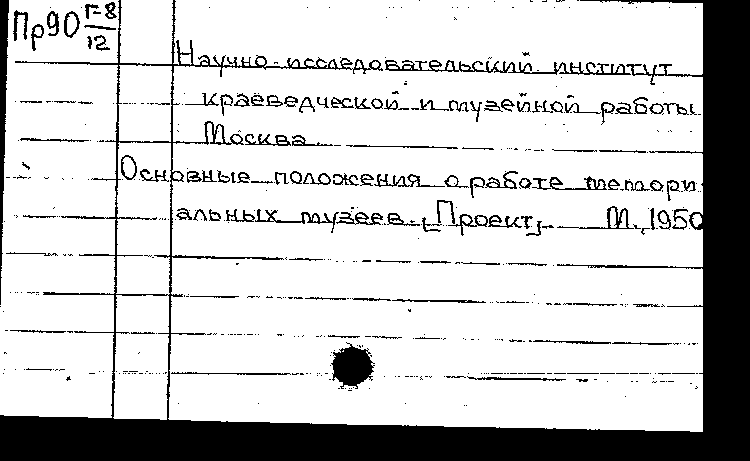 Пр90 Г-8/12
Научно-исследовательский институт
краеведческой и музейной работы
Москва
Основные положения о работе мемори-
альных музеев. [Проект]. М., 1950